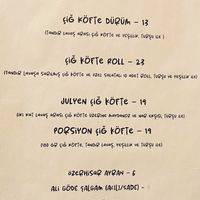 ÇİĞ KÖFTE DÜRÜM - 13
(TANDIR LAVAŞ ARASI ÇİĞ KÖFTE VE YEŞİLLİK, TURŞU İLE)
ÇİĞ KÖFTE ROLL - 23
(TANDIR LAVAŞA SARILMIŞ ÇİĞ KÖFTE VE ÖZEL SALATALI 10 ADET ROLL, TURŞU VE YEŞİLLİK İLE)
JULYEN ÇİĞ KÖFTE - 19
(İKİ KAT LAVAŞ ARASI ÇİĞ KÖFTE ÜZERİNE MAYDANOZ VE NAR EKŞİSİ, TURŞU İLE)
PORSİYON ÇİĞ KÖFTE - 19
GR ÇİĞ KÖFTE, TANDIR LAVAŞ, YEŞİLLİK VE TURŞU İLE)
ÜZERHİSAR AYRAN - 6
ALİ GÖDE ŞALGAM (ACILI/SADE) -